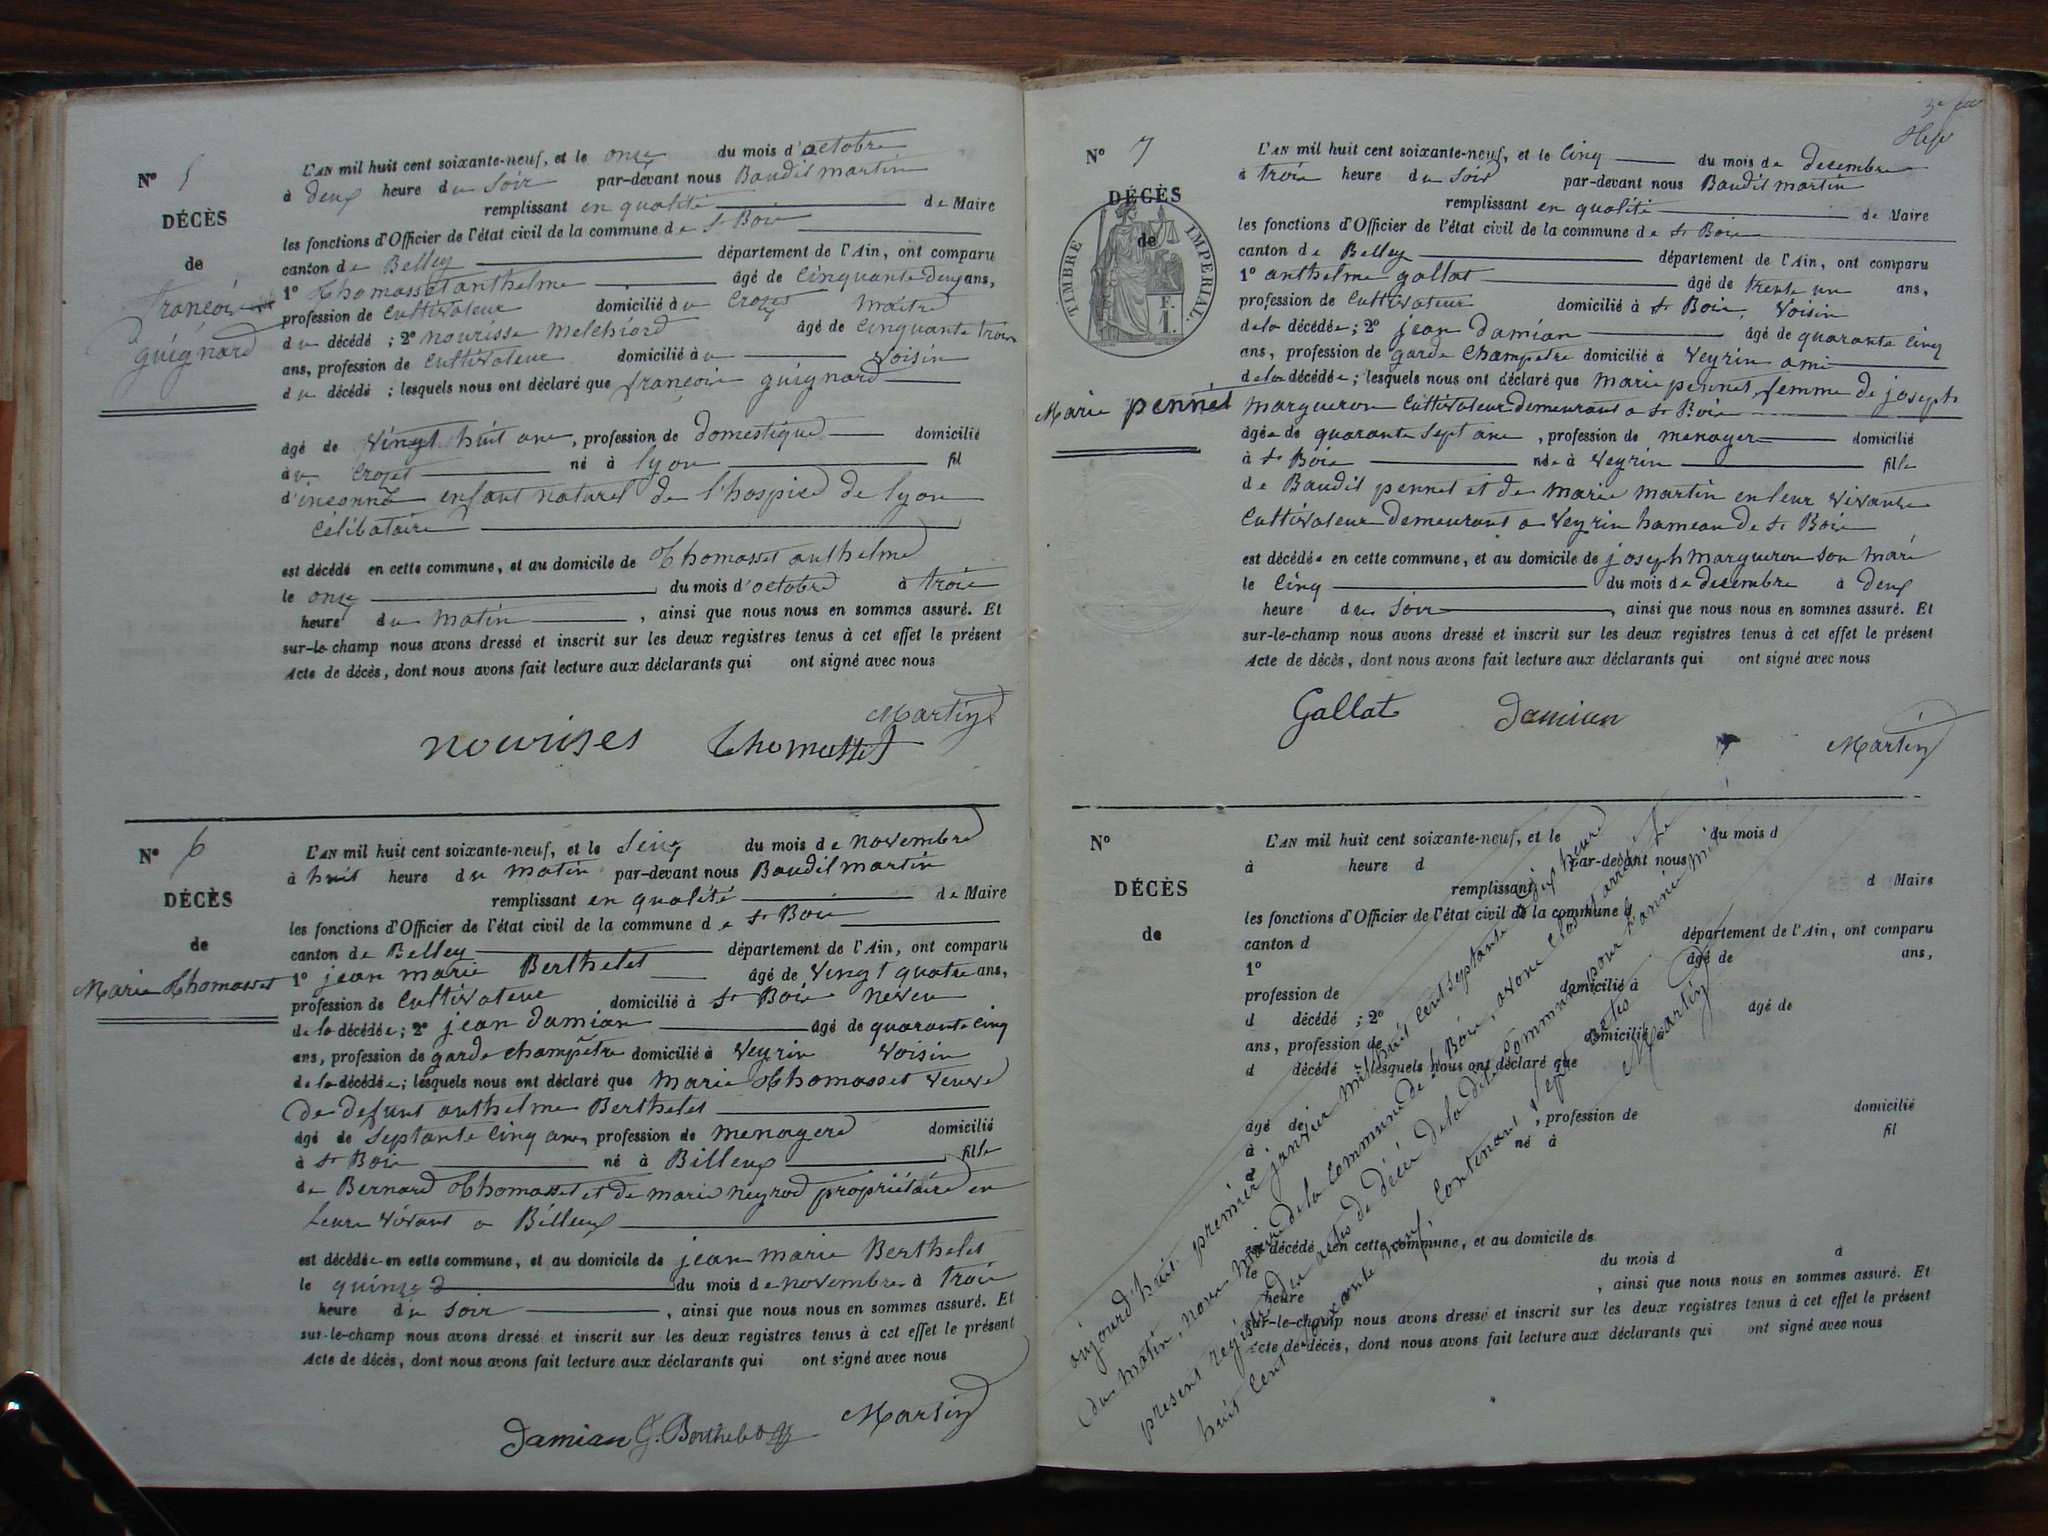 N° 5
DÉCÈS
de
françois
guignard
L'AN mil huit cent soixante-neuf, et le onze du mois d'octobre
à deux heure du soir par-devant nous Baudil martin
remplissant en qualité de Maire
les fonctions d'Officier de l'état civil de la commune de St Bois
canton de Belley département de l'Ain, ont comparu
1° Thomasset anthelme âgé de cinquante deux ans,
profession de cultivateur domicilié à au Crozet maitre
du décédé ; 2° nourisse melchiord âgé de cinquante trois
ans, profession de cultivateur domicilié à u voisin
du décédé ; lesquels nous ont déclaré que françois guignard
âgé de vingt huit ans, profession de domestique domicilié
à u Crozet né à lyon fil
d'inconnu enfant naturel de l'hospice de lyon
célibataire
est décédé en cette commune, et au domicile de Thomasset anthelme
le onze du mois d'octobre à trois
heure du matin, ainsi que nous nous en sommes assuré. Et
sur-le-champ nous avons dressé et inscrit sur les deux registres tenus à cet effet le présent
Acte de décès, dont nous avons fait lecture aux déclarants qui ont signé avec nous
Martin
nourises Thomasset
N° 6
DÉCÈS
de
Marie Thomasset
L'AN mil huit cent soixante-neuf, et le seize du mois de novembre
à huit heure du matin par-devant nous Baudil martin
remplissant en qualité de Maire
les fonctions d'Officier de l'état civil de la commune de St Bois
canton de Belley département de l'Ain, ont comparu
1° jean marie Berthelet âgé de vingt quatre ans,
profession de cultivateur domicilié à St Bois neveu
de la décédée ; 2° jean damian âgé de quarante cinq
ans, profession de garde champêtre domicilié à Veyrin Voisin
de la décédée ; lesquels nous ont déclaré que marie Thomasset veuve
de defunt anthelme Berthelet
âgé de septante cinq ans, profession de menagere domicilié
à St Bois né à Billeux fille
de Bernard Thomasset et de marie neyrod propriétaire en
leure vivant a Billeux
est décédée en cette commune, et au domicile de jean marie Berthelet
le quinze du mois de novembre à trois
heure du soir, ainsi que nous nous en sommes assuré. Et
sur-le-champ nous avons dressé et inscrit sur les deux registres tenus à cet effet le présent
Acte de décès, dont nous avons fait lecture aux déclarants qui ont signé avec nous
Martin
Damian J. Berthelet
N° 7
DÉCÈS
de
TIMBRE IMPERIAL.
F.
1.
Marie pennet
L'AN mil huit cent soixante-neuf, et le cinq du mois de decembre
à trois heure du soir par-devant nous Baudil martin
remplissant en qualité de Maire
les fonctions d'Officier de l'état civil de la commune de St Bois
canton de Belley département de l'Ain, ont comparu
1° anthelme gallat âgé de trente un ans,
profession de cultivateur domicilié à St Bois, Voisin
de la décédée ; 2° jean damian âgé de quarante cinq
ans, profession de garde champetre domicilié à Veyrin ami
de la décédée ; lesquels nous ont déclaré que marie pennet femme de joseph
margueron cultivateur demeurant a St Bois
âgée de quarante sept ans, profession de menagere domicilié
à St Bois née à Veyrin fille
de Baudil pennet et de marie martin en leur vivante
cultivateur demeurant a Veyrin hameau de St Bois
est décédée en cette commune, et au domicile de joseph margueron son mari
le cinq du mois de decembre à deux
heure du soir, ainsi que nous nous en sommes assuré. Et
sur-le-champ nous avons dressé et inscrit sur les deux registres tenus à cet effet le présent
Acte de décès, dont nous avons fait lecture aux déclarants qui ont signé avec nous
Gallat Damian
Martin
N°
DÉCÈS
de
L'AN mil huit cent soixante-neuf, et le du mois d
à heure d par-devant nous
remplissant d Maire
les fonctions d'Officier de l'état civil de la commune d
canton d département de l'Ain, ont comparu
1° âgé de ans,
profession de domicilié à
d décédé ; 2° âgé de
ans, profession de domicilié à
d décédé ; lesquels nous ont déclaré que
âgé de , profession de domicilié
à né à fil
d
est décédé en cette commune, et au domicile de
le du mois d à
heure , ainsi que nous nous en sommes assuré. Et
sur-le-champ nous avons dressé et inscrit sur les deux registres tenus à cet effet le présent
Acte de décès, dont nous avons fait lecture aux déclarants qui ont signé avec nous
aujourd'huit premier janvier mil huit cent septante dix heure
du matin, nous maire de la commune de St Bois, avons clos et arrêté le
present registre du actes de décès de la dite commune pour l'année mil
huit cent soixante neuf, contenant sept actes
Martin